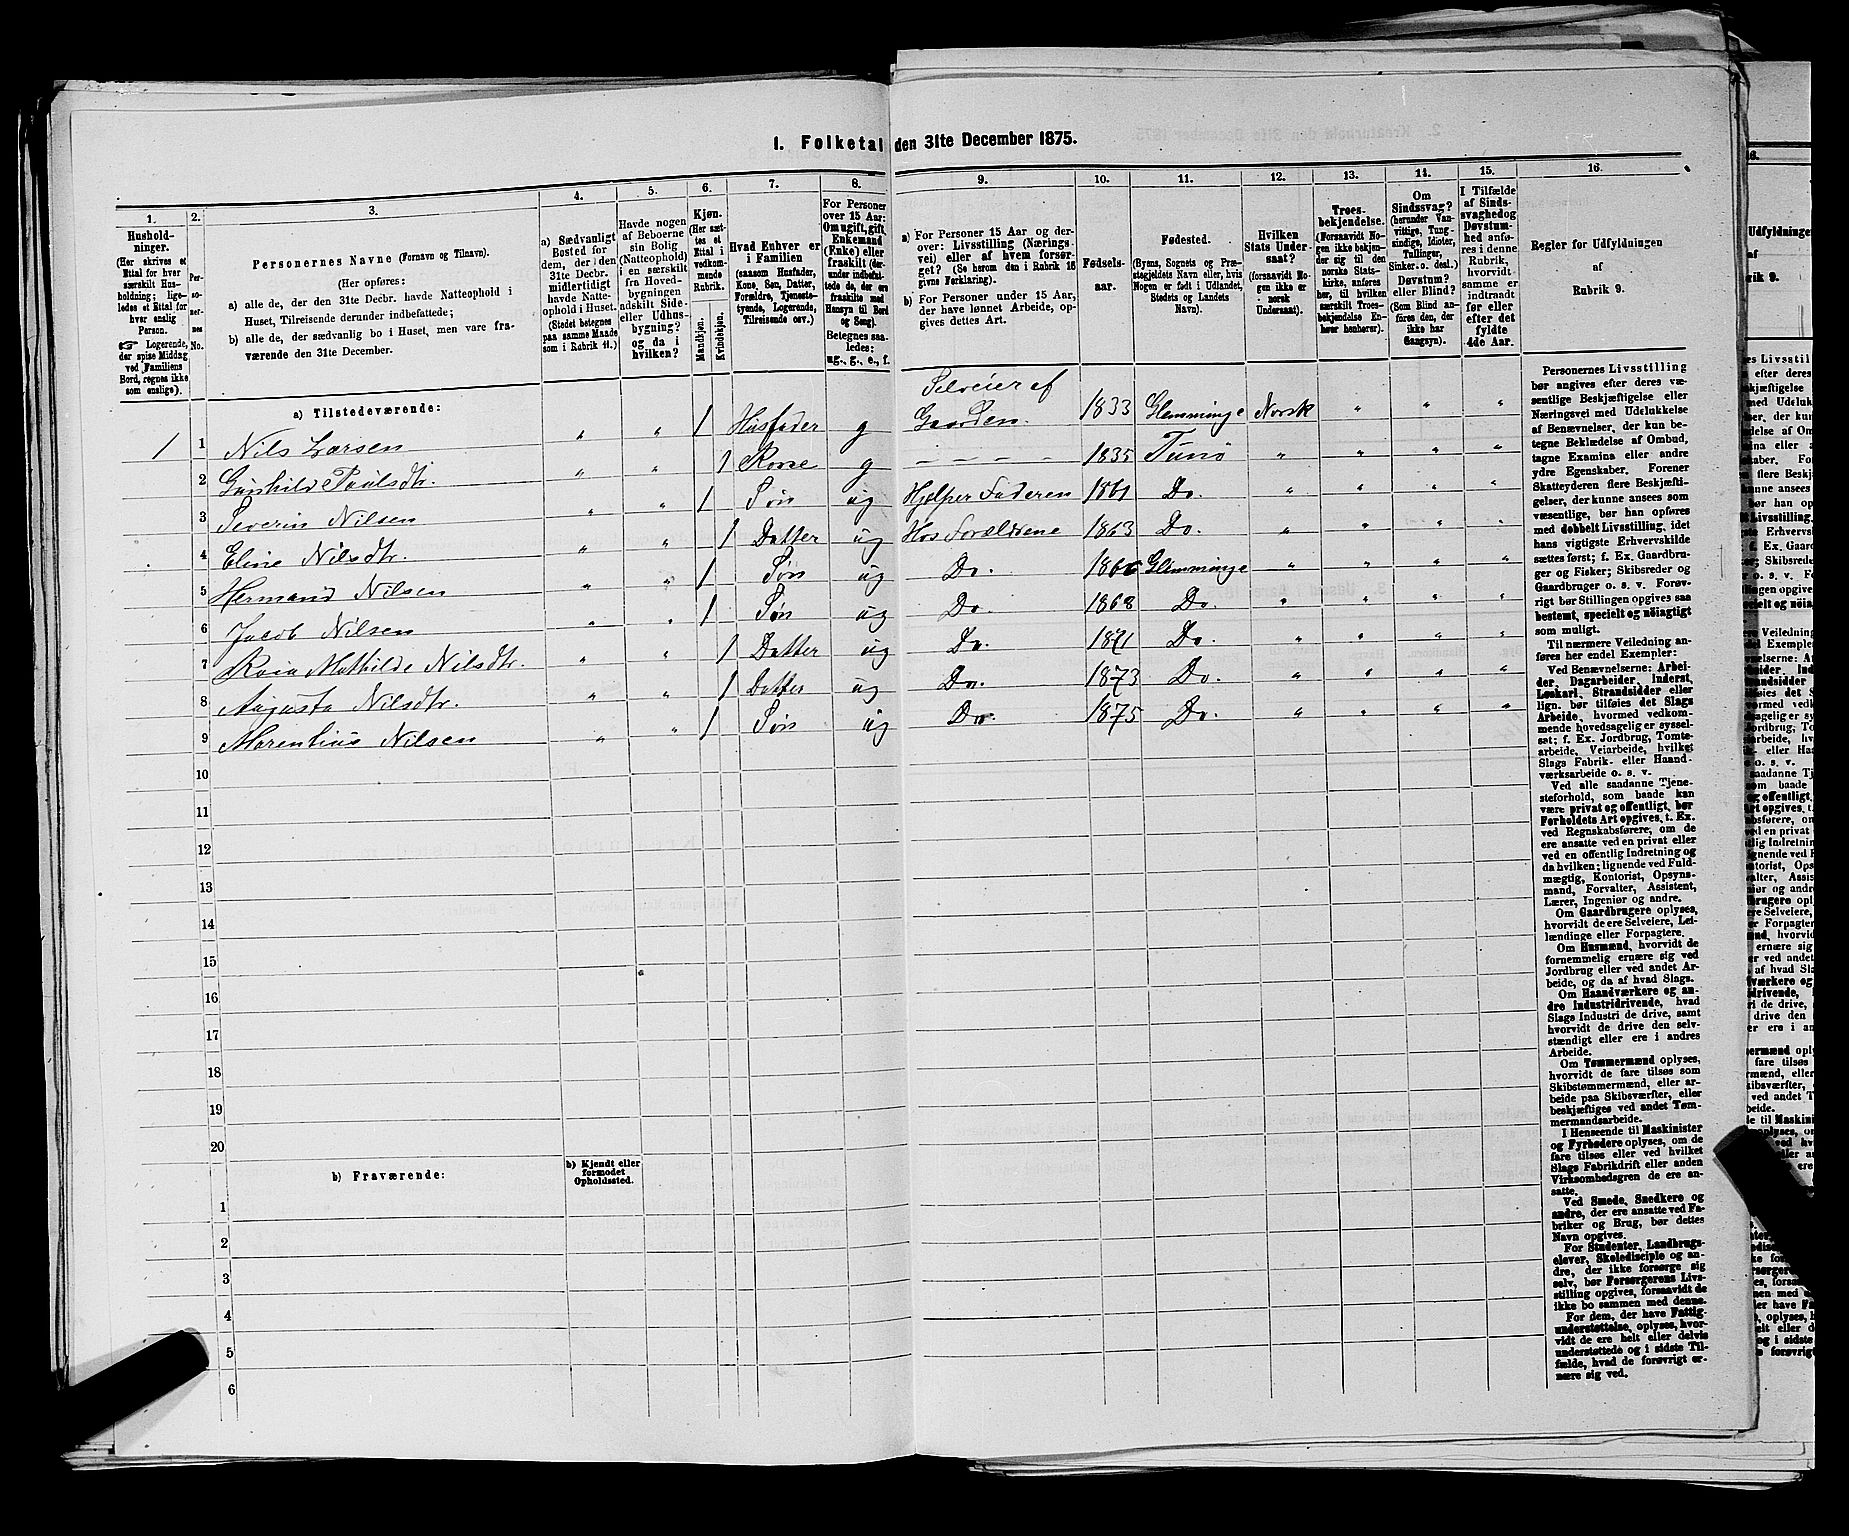 1. Folketal den 31te December 1875.
1.
Hushold-
ninger.
(Her skrives et
Ettal for hver
særskilt Hus-
holdning; lige-
ledes et Ettal for
hver enslig
Person.
☞ Logerende,
der spise Middag
ved Familiens
Bord, regnes ikke
som enslige).
2.
Per-
so-
ner-
nes
No.
3.
Personernes Navne (Fornavn og Tilnavn).
(Her opføres:
a) alle de, der den 31te Decbr. havde Natteophold i
Huset, Tilreisende derunder indbefattede;
b) alle de, der sædvanlig bo i Huset, men vare fra-
værende den 31te December.
4.
a) Sædvanligt
Bosted for
dem, der i den
31te Decbr.
midlertidigt
havde Natte-
ophold i Huset.
(Stedet betegnes
paa samme Maade
som i Rubrik 11.)
5.
Havde nogen
af Beboerne
sin Bolig
(Natteophold)
i en særskilt
fra Hoved-
bygningen
adskilt Side-
eller Udhus-
bygning?
og da i
hvilken?
6.
Kjøn.
(Her sæt-
tes et
Ettal i
vedkom-
mende
Rubrik.
Mandkjøn.
Kvindekjøn.
7.
Hvad Enhver er
i Familien
(saasom Husfader,
Kone, Søn, Datter,
Forældre, Tjeneste-
tyende, Logerende,
Tilreisende osv.)
8.
For Personer
over 15 Aar:
Om ugift, gift,
Enkemand
(Enke) eller
fraskilt (der-
under indbefat-
tede de, der ere
fraskilte med
Hensyn til Bord
og Seng).
Betegnes saa-
ledes:
ug., g., e., f.
9.
a) For Personer 15 Aar og der-
over: Livsstilling (Nærings-
vei) eller af hvem forsør-
get? (Se herom den i Rubrik 16
givne Forklaring).
b) For Personer under 15 Aar,
der have lønnet Arbeide, op-
gives dettes Art.
10.
Fødsels-
aar.
11.
Fødested.
(Byens, Sognets og Præ-
stegjeldets Navn eller, hvis
Nogen er født i Udlandet,
Stedets og Landets
Navn).
12.
Hvilken
Stats Under-
saat?
(forsaavidt No-
gen ikke er
norsk
Undersaat).
13.
Troes-
bekjendelse.
(Forsaavidt No-
gen ikke bekjen-
der sig til den
norske Stats-
kirke, anføres
her, til hvilken
særskilt Troes-
bekjendelse En-
hver henhører).
14.
Om
Sindssvag?
(herunder Van-
vittige, Tung-
sindige, Idioter,
Tullinger,
Sinker. o. desl.)
Døvstum?
eller Blind?
(Som Blind an-
føres den, der
ikke har
Gangsyn).
15.
I Tilfælde
af Sinds-
svaghed og
Døvstum-
hed anfø-
res i denne
Rubrik,
hvorvidt
samme er
indtraadt
før eller
efter det
fyldte
4de Aar.
16.
Regler for Udfyldningen
af
Rubrik 9.
a) Tilstedeværende:
1 1 Nils Larsen " " 1 Husfader g Selveier af Gaarden. 1833 Glemminge Norsk " " "
2 Gunhild Paulsdtr. " " 1 Kone g - - - - 1835 Tunø " " " "
3 Severin Nilsen " " 1 Søn ug Hjelper Faderen 1861 Do. " " " "
4 Eline Nilsdtr. " " 1 Datter ug Hos Forældrene 1863 Do. " " " "
5 Hermand Nilsen " " 1 Søn ug Do. 1866 Glemminge " " " "
6 Jacob Nilsen " " 1 Søn ug Do. 1868 Do. " " " "
7 Rosa Mathilde Nilsdtr. " " 1 Datter ug Do. 1871 Do. " " " "
8 Augusta Nilsdtr. " " 1 Datter ug Do. 1873 Do. " " " "
9 Marenthius Nilsen " " 1 Søn ug Do. 1875 Do. " " " "
10
11
12
13
14
15
16
17
18
19
20
b) Fraværende:
b) Kjendt eller
formodet
Opholdssted.
1
2
3
4
5
6
Personernes Livsstilling
bør angives efter deres væ-
sentlige Beskjæftigelse eller
Næringsvei med Udelukkelse
af Benævnelser, der kun be-
tegne Beklædelse af Ombud,
tagne Examina eller andre
ydre Egenskaber. Forener
Skatteyderen flere Beskjæfti-
gelser, der kunne ansees som
væsentlige, bør han opføres
med dobbelt Livsstilling, idet
hans vigtigste Erhvervskilde
sættes først; f. Ex. Gaardbru-
ger og Fisker; Skibsreder og
Gaardbruger o. s. v. Forøv-
rigt bør Stillingen opgives saa
bestemt, specielt og nøiagtigt
som muligt.
Til nærmere Veiledning an-
føres her endel Exempler:
Ved Benævnelserne: Arbei-
der, Dagarbeider, Inderst,
Løskarl, Strandsidder eller
lign. bør tilføies det Slags
Arbeide, hvormed vedkom-
mende hovedsagelig er syssel-
sat; f. Ex. Jordbrug, Tomte-
arbeide, Veiarbeide, hvilket
Slags Fabrik- eller Haand-
værksarbeide o. s. v.
Ved alle saadanne Tjene-
steforhold, som baade kan
være privat og offentligt, bør
Forholdets Art opgives, t. Ex.
ved Regnskabsførere, om de
ere ansatte ved en privat eller
ved en offentlig Indretning og
da hvilken; lignende ved Fuld-
mægtig, Kontorist, Opsyns-
mand, Forvalter, Assistent,
Lærer, Ingeniør og andre.
Om Gaardbrugere oplyses,
hvorvidt de ere Selveiere, Lei-
lændinge eller Forpagtere.
Om Husmænd, hvorvidt de
fornemmelig ernære sig ved
Jordbrug eller ved andet Ar-
beide, og da af hvad Slags.
Om Haandværkere og an-
dre Industridrivende, hvad
Slags Industri de drive, samt
hvorvidt de drive den selv-
stændigt eller ere i andres
Arbeide.
Om Tømmermænd oplyses,
hvorvidt de fare tilsøs som
Skibstømmermænd, eller ar-
beide paa Skibsværfter, eller
beskjæftiges ved andet Tøm-
mermandsarbeide.
I Henseende til Maskinister
og Fyrbødere oplyses, om de
fare tilsøs eller ved hvilket
Slags Fabrikdrift eller anden
Virksomhedsgren de ere an-
satte.
Ved Smede, Snedkere og
andre, der ere ansatte ved Fa-
briker og Brug, bør dettes
Navn opgives.
For Studenter, Landbrugs-
elever, Skoledisciple og an-
dre, der ikke forsørge sig
selv, bør Forsørgerens Livs-
stilling opgives, forsaavidt de
ikke bo sammen med denne.
For dem, der have Fattig-
understøttelse, oplyses, hvor-
vidt de ere helt eller delvis
understøttede og i sidste Til-
fælde, hvad de forøvrigt er-
nære sig ved.